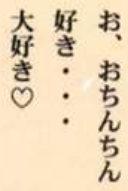 お、おちんちん
好き・・・
大好き♡